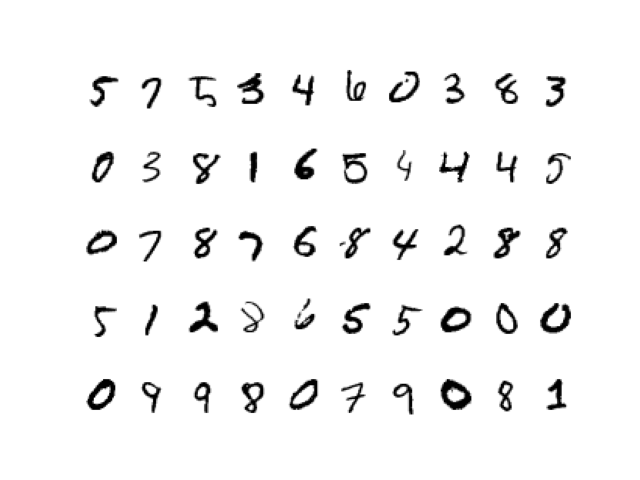 5 7 5 3 4 6 0 3 8 3
0 3 8 1 6 5 4 4 4 5
0 7 8 7 6 8 4 2 8 8
5 1 2 8 6 5 5 0 0 0
0 9 9 8 0 7 9 0 8 1